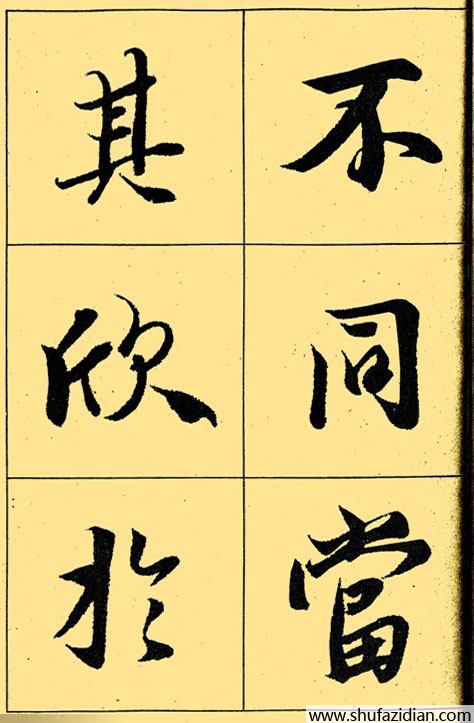 不同當
其欣於
www.shufazidian.com